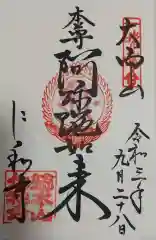 大内山
令和三年
九月二十八日
本尊
阿弥陀如来
仁和寺